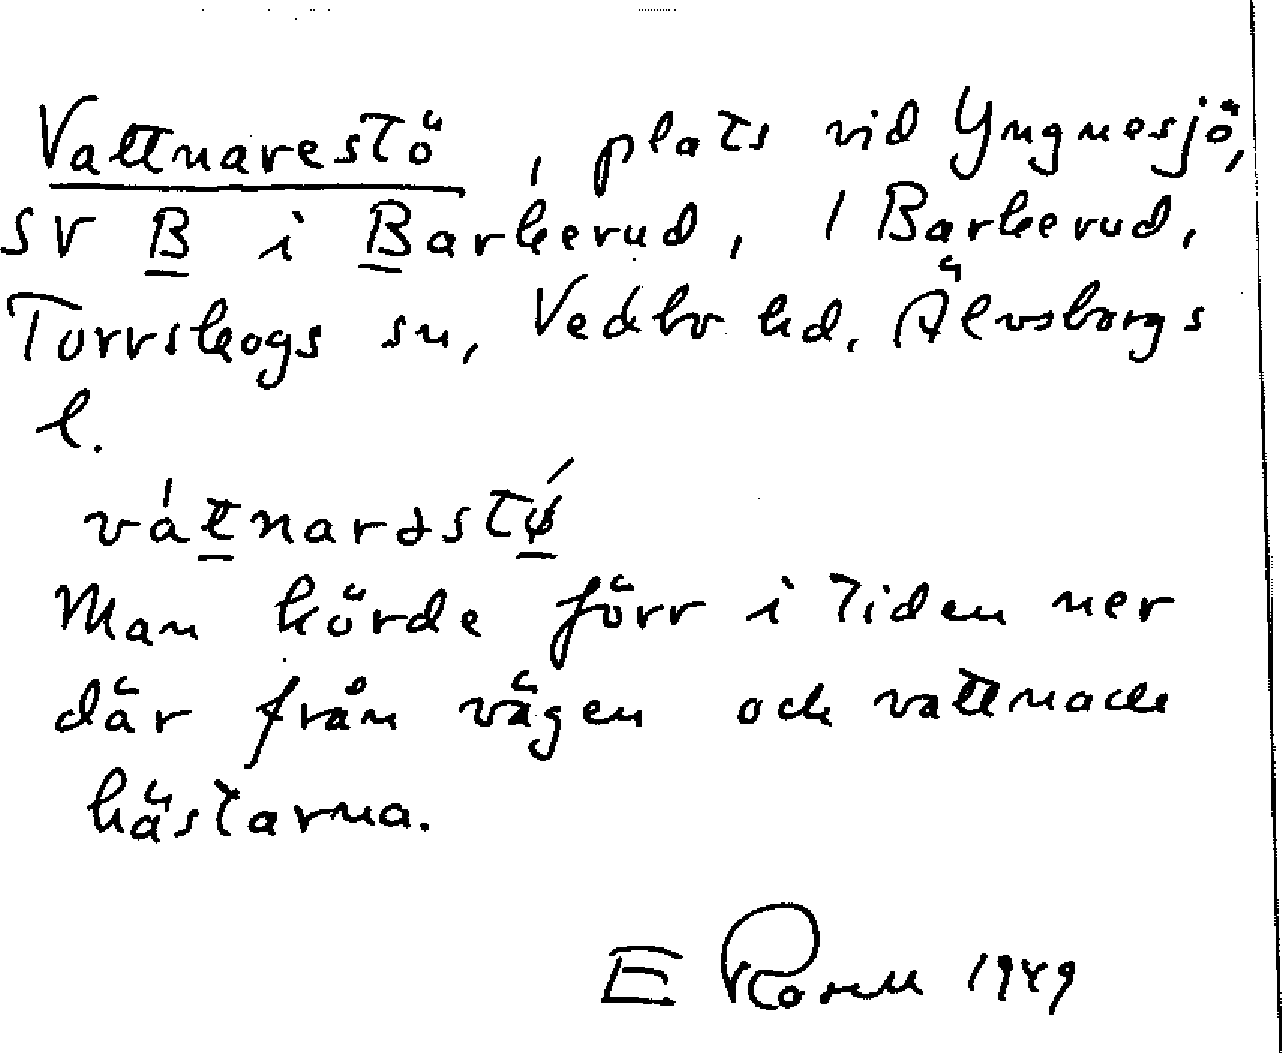 Vattnarestö, plats vid Yngnesjö,
SV B i Barkerud, 1 Barkerud,
Torrskogs sn, Vedbo hd, Älvsborgs
l.
vátnarəstǿ
Man körde förr i tiden ner
där från vägen och vattnade
hästarna.
E Rosell 1949